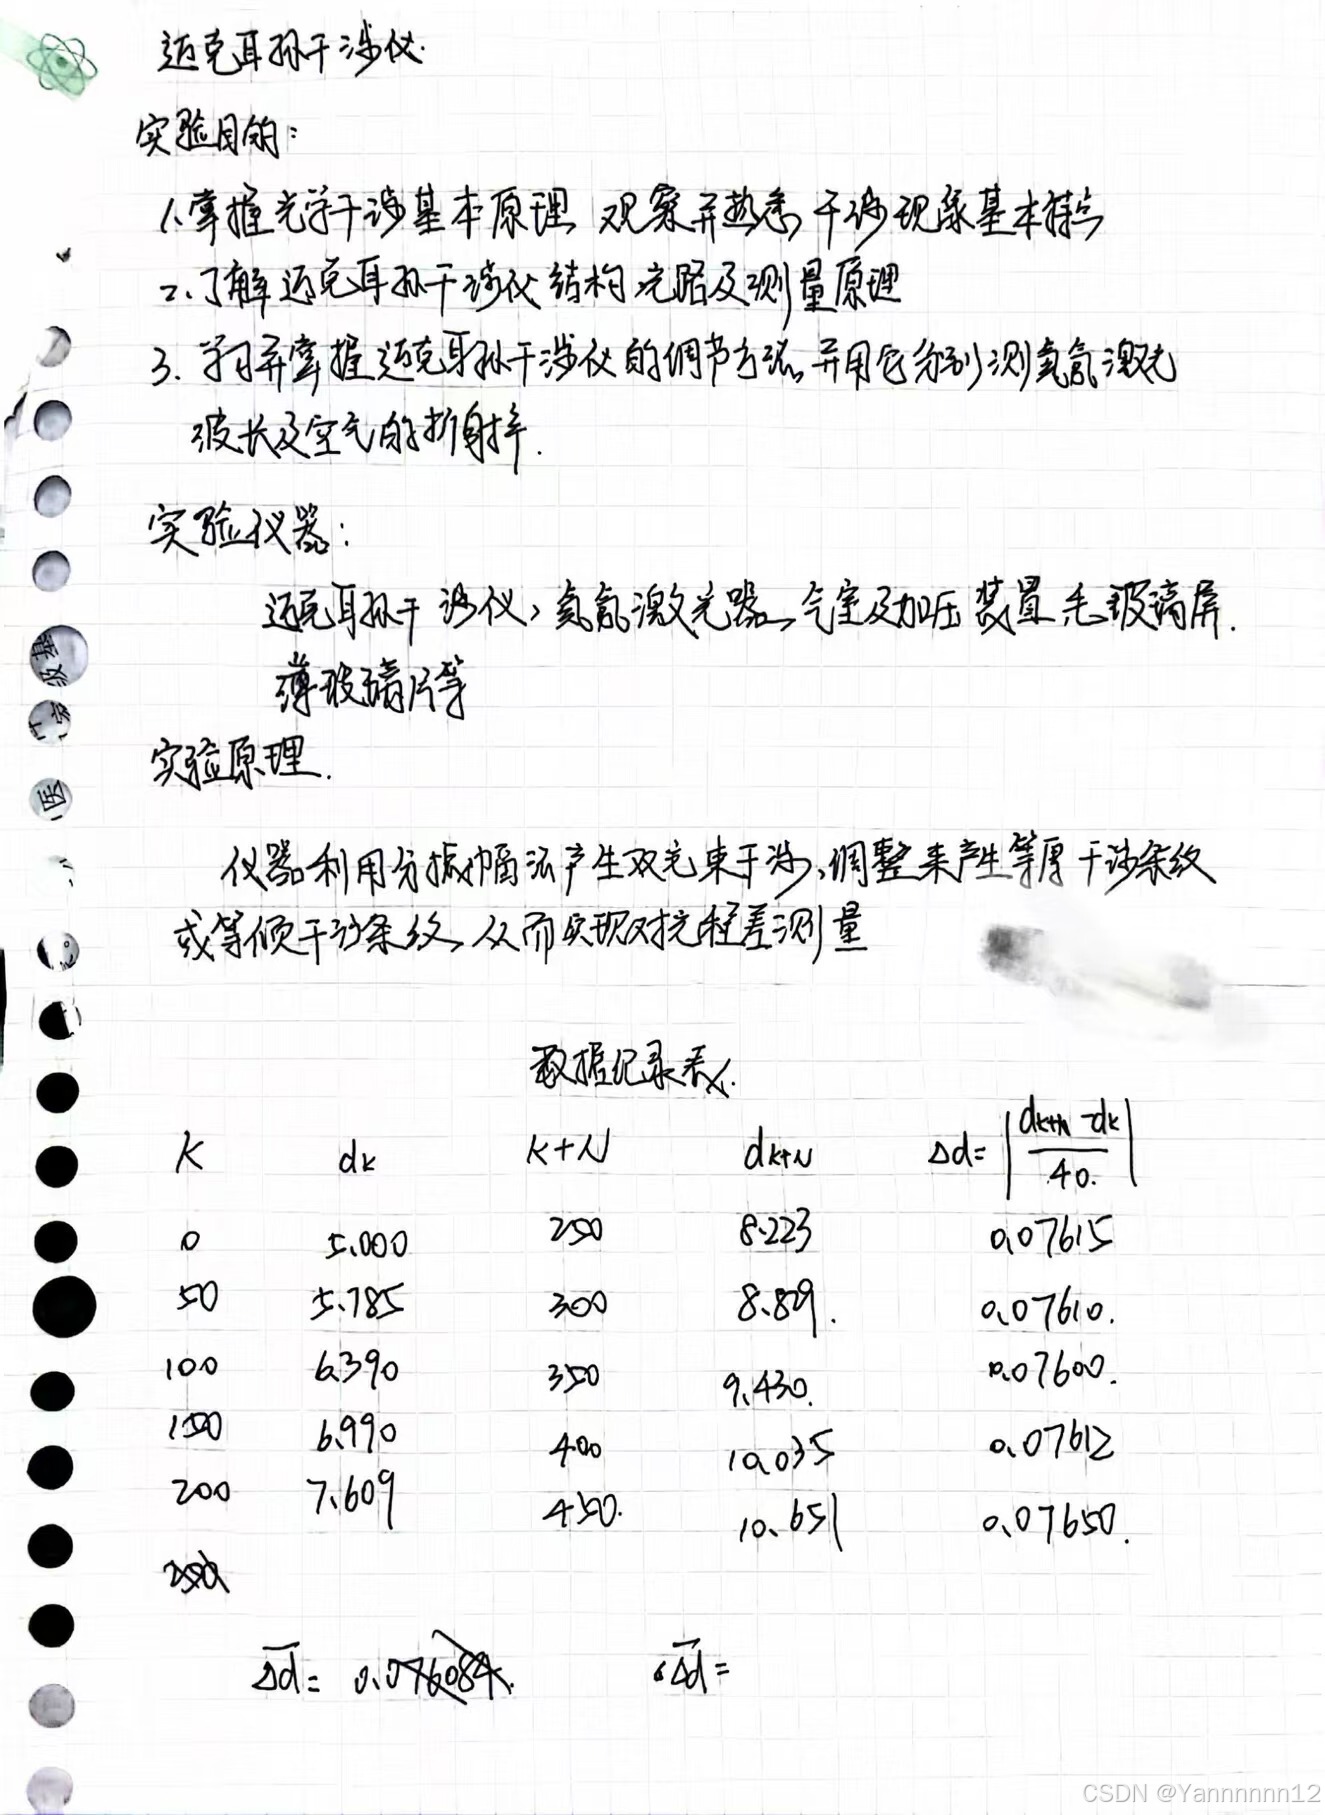 迈克耳孙干涉仪.
实验目的:
1.掌握光学干涉基本原理,观察并熟悉干涉现象基本特点
2.了解迈克耳孙干涉仪结构光路及测量原理
3.学习并掌握迈克耳孙干涉仪的调节方法,并用它分别测氦氖激光
波长及空气的折射率.
实验仪器:
迈克耳孙干涉仪,氦氖激光器,气室及加压装置 毛玻璃屏.
薄玻璃片等
实验原理.
仪器利用分振幅法产生双光束干涉,调整来产生等厚干涉条纹
或等倾干涉条纹,从而实现对光程差测量
数据记录表
K dk K+N dk+N Δd=|dk+N-dk/40.|
0 5.000 250 8.223 0.07615
50 5.785 300 8.829. 0.07610.
100 6.390 350 9.430. 0.07600.
150 6.990 400 10.035 0.07612
200 7.609 450. 10.651 0.07650.
Δd= 0.076084. Δd=
CSDN @Yannnnnn12